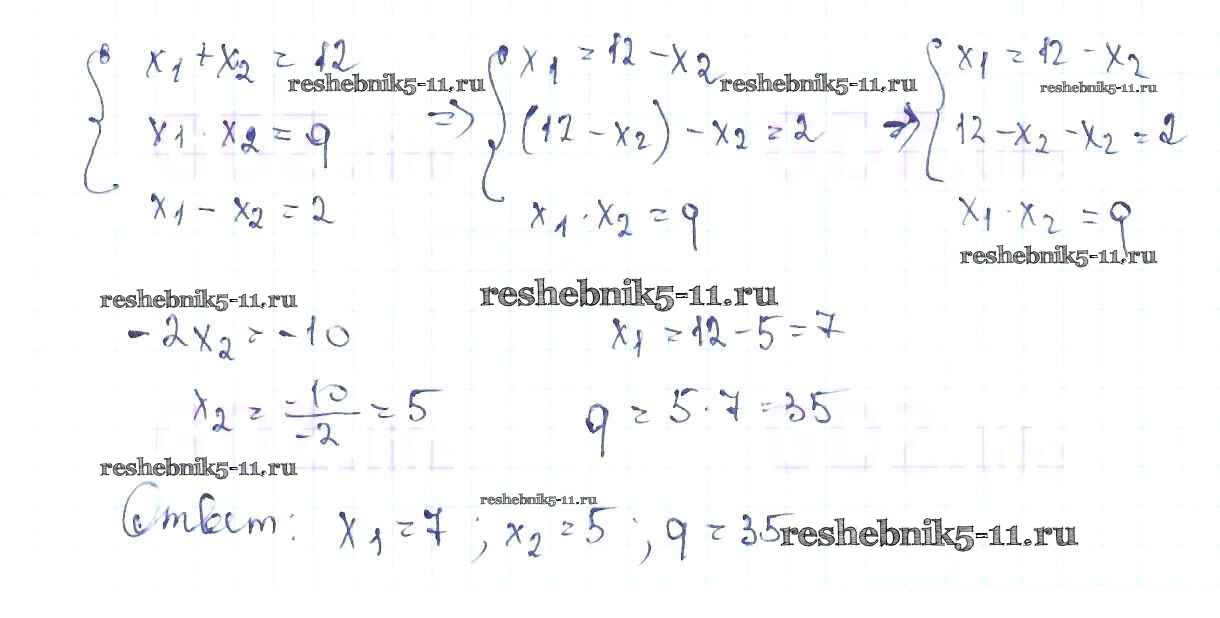 x₁ + x₂ = 12
x₁ · x₂ = q
x₁ - x₂ = 2
reshebnik5-11.ru
=> x₁ = 12 - x₂
(12 - x₂) - x₂ = 2
x₁ · x₂ = q
reshebnik5-11.ru
=> x₁ = 12 - x₂
reshebnik5-11.ru
12 - x₂ - x₂ = 2
x₁ · x₂ = q
reshebnik5-11.ru
reshebnik5-11.ru
reshebnik5-11.ru
-2x₂ = -10
x₁ = 12 - 5 = 7
x₂ = -10/-2 = 5
q = 5 · 7 = 35
reshebnik5-11.ru
reshebnik5-11.ru
Ответ: x₁ = 7 ; x₂ = 5 ; q = 35
reshebnik5-11.ru